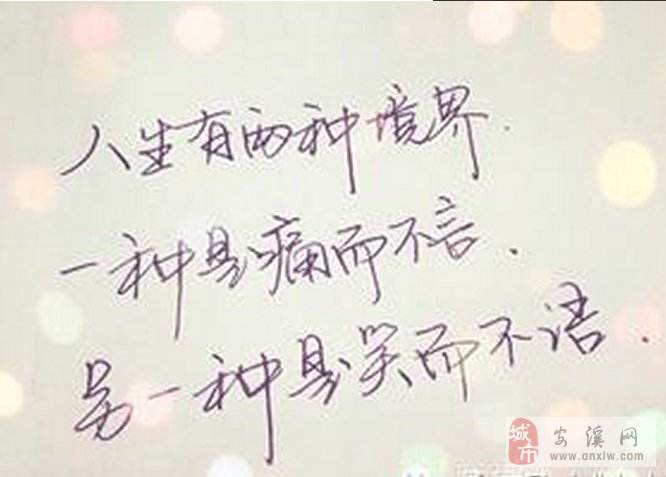 人生有两种境界.
一种是痛而不言.
另一种是笑而不语.
城市
安溪网
www.anxlw.com